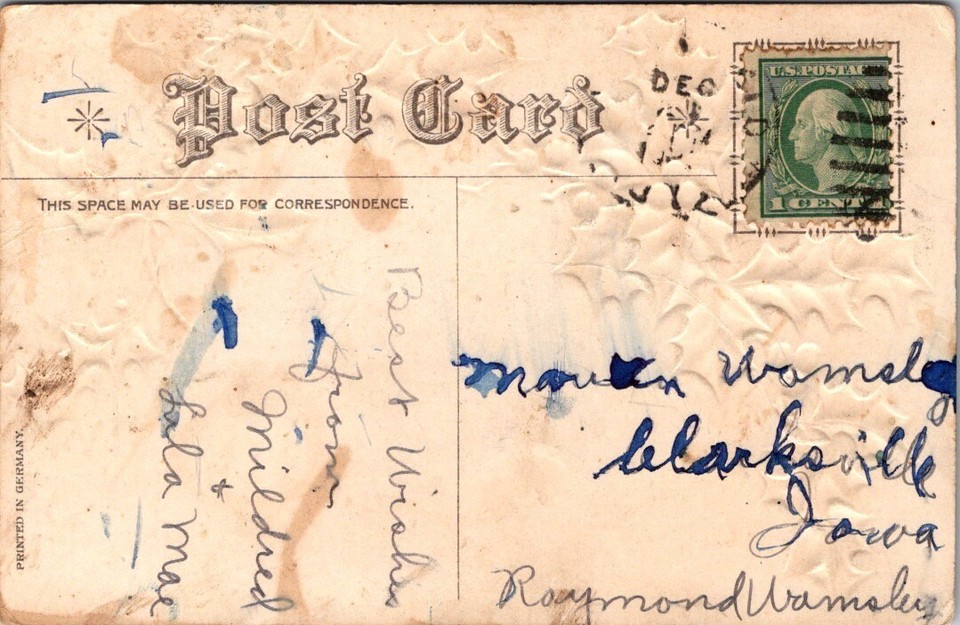 Post Card
DEC
U.S. POSTAGE
1 CENT
THIS SPACE MAY BE USED FOR CORRESPONDENCE.
Best Wishes
from
Mildred
+
Lula Mae
Wamsley
Clarksville
Iowa
Raymond Wamsley
PRINTED IN GERMANY.